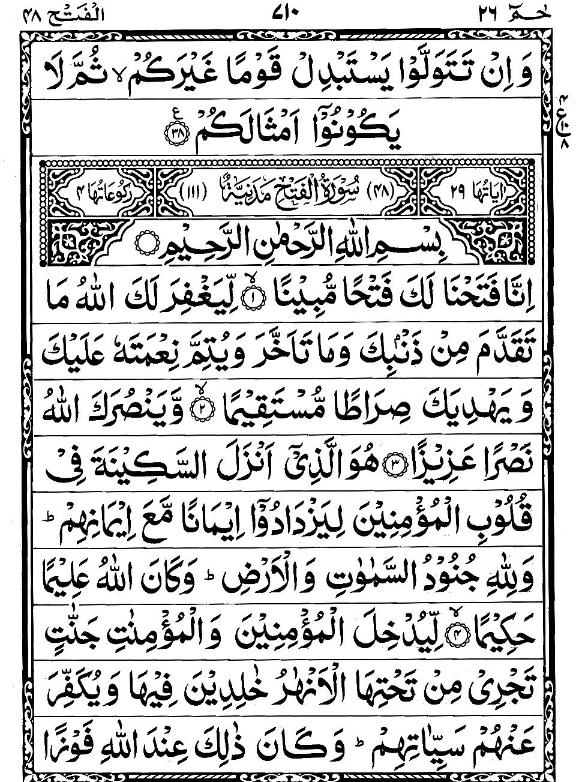 حٰمٓ ٢٦ ٧١٠ الْفَتْح ٤٨
وَاِنْ تَتَوَلَّوْا يَسْتَبْدِلْ قَوْمًا غَيْرَكُمْ ۙ ثُمَّ لَا
يَكُوْنُوْٓا اَمْثَالَكُمْ ﴿٣٨﴾
٤ ع ١٠ ٨
اٰيَاتُهَا ٢٩ (٤٨) سُوْرَةُ الْفَتْحِ مَدَنِيَّةٌ (١١١) رُكُوْعَاتُهَا ٤
بِسْمِ اللّٰهِ الرَّحْمٰنِ الرَّحِيْمِ
اِنَّا فَتَحْنَا لَكَ فَتْحًا مُّبِيْنًا ﴿١﴾ۙ لِّيَغْفِرَ لَكَ اللّٰهُ مَا
تَقَدَّمَ مِنْ ذَنْۢبِكَ وَمَا تَاَخَّرَ وَيُتِمَّ نِعْمَتَهٗ عَلَيْكَ
وَيَهْدِيَكَ صِرَاطًا مُّسْتَقِيْمًا ﴿٢﴾ۙ وَّيَنْصُرَكَ اللّٰهُ
نَصْرًا عَزِيْزًا ﴿٣﴾ هُوَ الَّذِيْٓ اَنْزَلَ السَّكِيْنَةَ فِيْ
قُلُوْبِ الْمُؤْمِنِيْنَ لِيَزْدَادُوْٓا اِيْمَانًا مَّعَ اِيْمَانِهِمْ ؕ
وَلِلّٰهِ جُنُوْدُ السَّمٰوٰتِ وَالْاَرْضِ ؕ وَكَانَ اللّٰهُ عَلِيْمًا
حَكِيْمًا ﴿٤﴾ۙ لِّيُدْخِلَ الْمُؤْمِنِيْنَ وَالْمُؤْمِنٰتِ جَنّٰتٍ
تَجْرِيْ مِنْ تَحْتِهَا الْاَنْهٰرُ خٰلِدِيْنَ فِيْهَا وَيُكَفِّرَ
عَنْهُمْ سَيِّاٰتِهِمْ ؕ وَكَانَ ذٰلِكَ عِنْدَ اللّٰهِ فَوْزًا